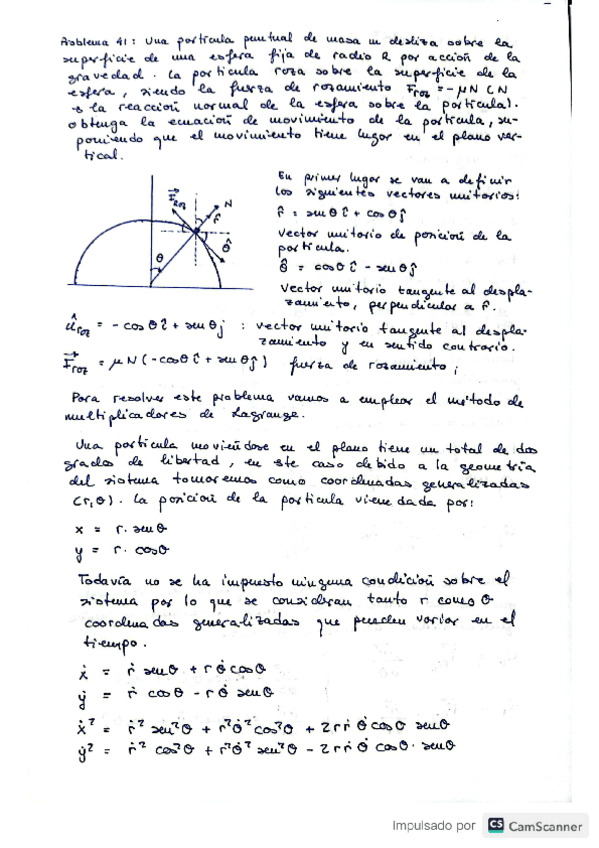 Problema 41: Una partícula puntual de masa m desliza sobre la
superficie de una esfera fija de radio R por acción de la
gravedad. La partícula roza sobre la superficie de la
esfera, siendo la fuerza de rozamiento Froz = -μN (N
es la reacción normal de la esfera sobre la partícula).
Obtenga la ecuación de movimiento de la partícula, su-
poniendo que el movimiento tiene lugar en el plano ver-
tical.
En primer lugar se van a definir
los siguientes vectores unitarios:
r̂ = senθ î + cosθ ĵ
vector unitario de posición de la
partícula.
θ̂ = cosθ î - senθ ĵ
vector unitario tangente al despla-
zamiento, perpendicular a r̂.
Froz
N
r̂
θ
θ̂
ûroz = -cosθ î + senθ ĵ : vector unitario tangente al despla-
zamiento y en sentido contrario.
Froz = μN(-cosθ î + senθ ĵ) fuerza de rozamiento;
Para resolver este problema vamos a emplear el método de
multiplicadores de Lagrange.
Una partícula moviéndose en el plano tiene un total de dos
grados de libertad, en este caso debido a la geometría
del sistema tomaremos como coordenadas generalizadas
(r,θ). La posición de la partícula viene dada por:
x = r·senθ
y = r·cosθ
Todavía no se ha impuesto ninguna condición sobre el
sistema por lo que se consideran tanto r como θ
coordenadas generalizadas que pueden variar en el
tiempo.
ẋ = ṙ senθ + rθ̇ cosθ
ẏ = ṙ cosθ - rθ̇ senθ
ẋ² = ṙ² sen²θ + r²θ̇² cos²θ + 2rṙθ̇ cosθ senθ
ẏ² = ṙ² cos²θ + r²θ̇² sen²θ - 2rṙθ̇ cosθ·senθ
Impulsado por CS CamScanner